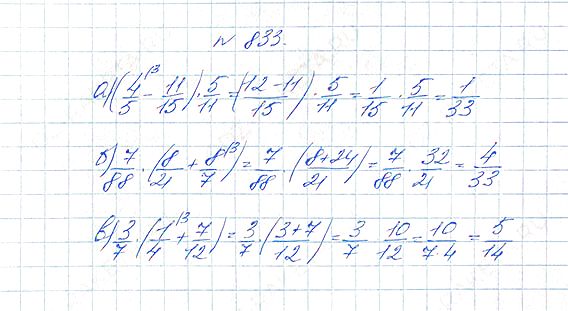 № 833.
а) (4/5 ⁽³ - 11/15) · 5/11 = (12-11/15) · 5/11 = 1/15 · 5/11 = 1/33
б) 7/88 · (8/21 + 8/7 ⁽³) = 7/88 · (8+24/21) = 7/88 · 32/21 = 4/33
в) 3/7 · (1/4 ⁽³ + 7/12) = 3/7 · (3+7/12) = 3/7 10/12 = 10/7·4 = 5/14